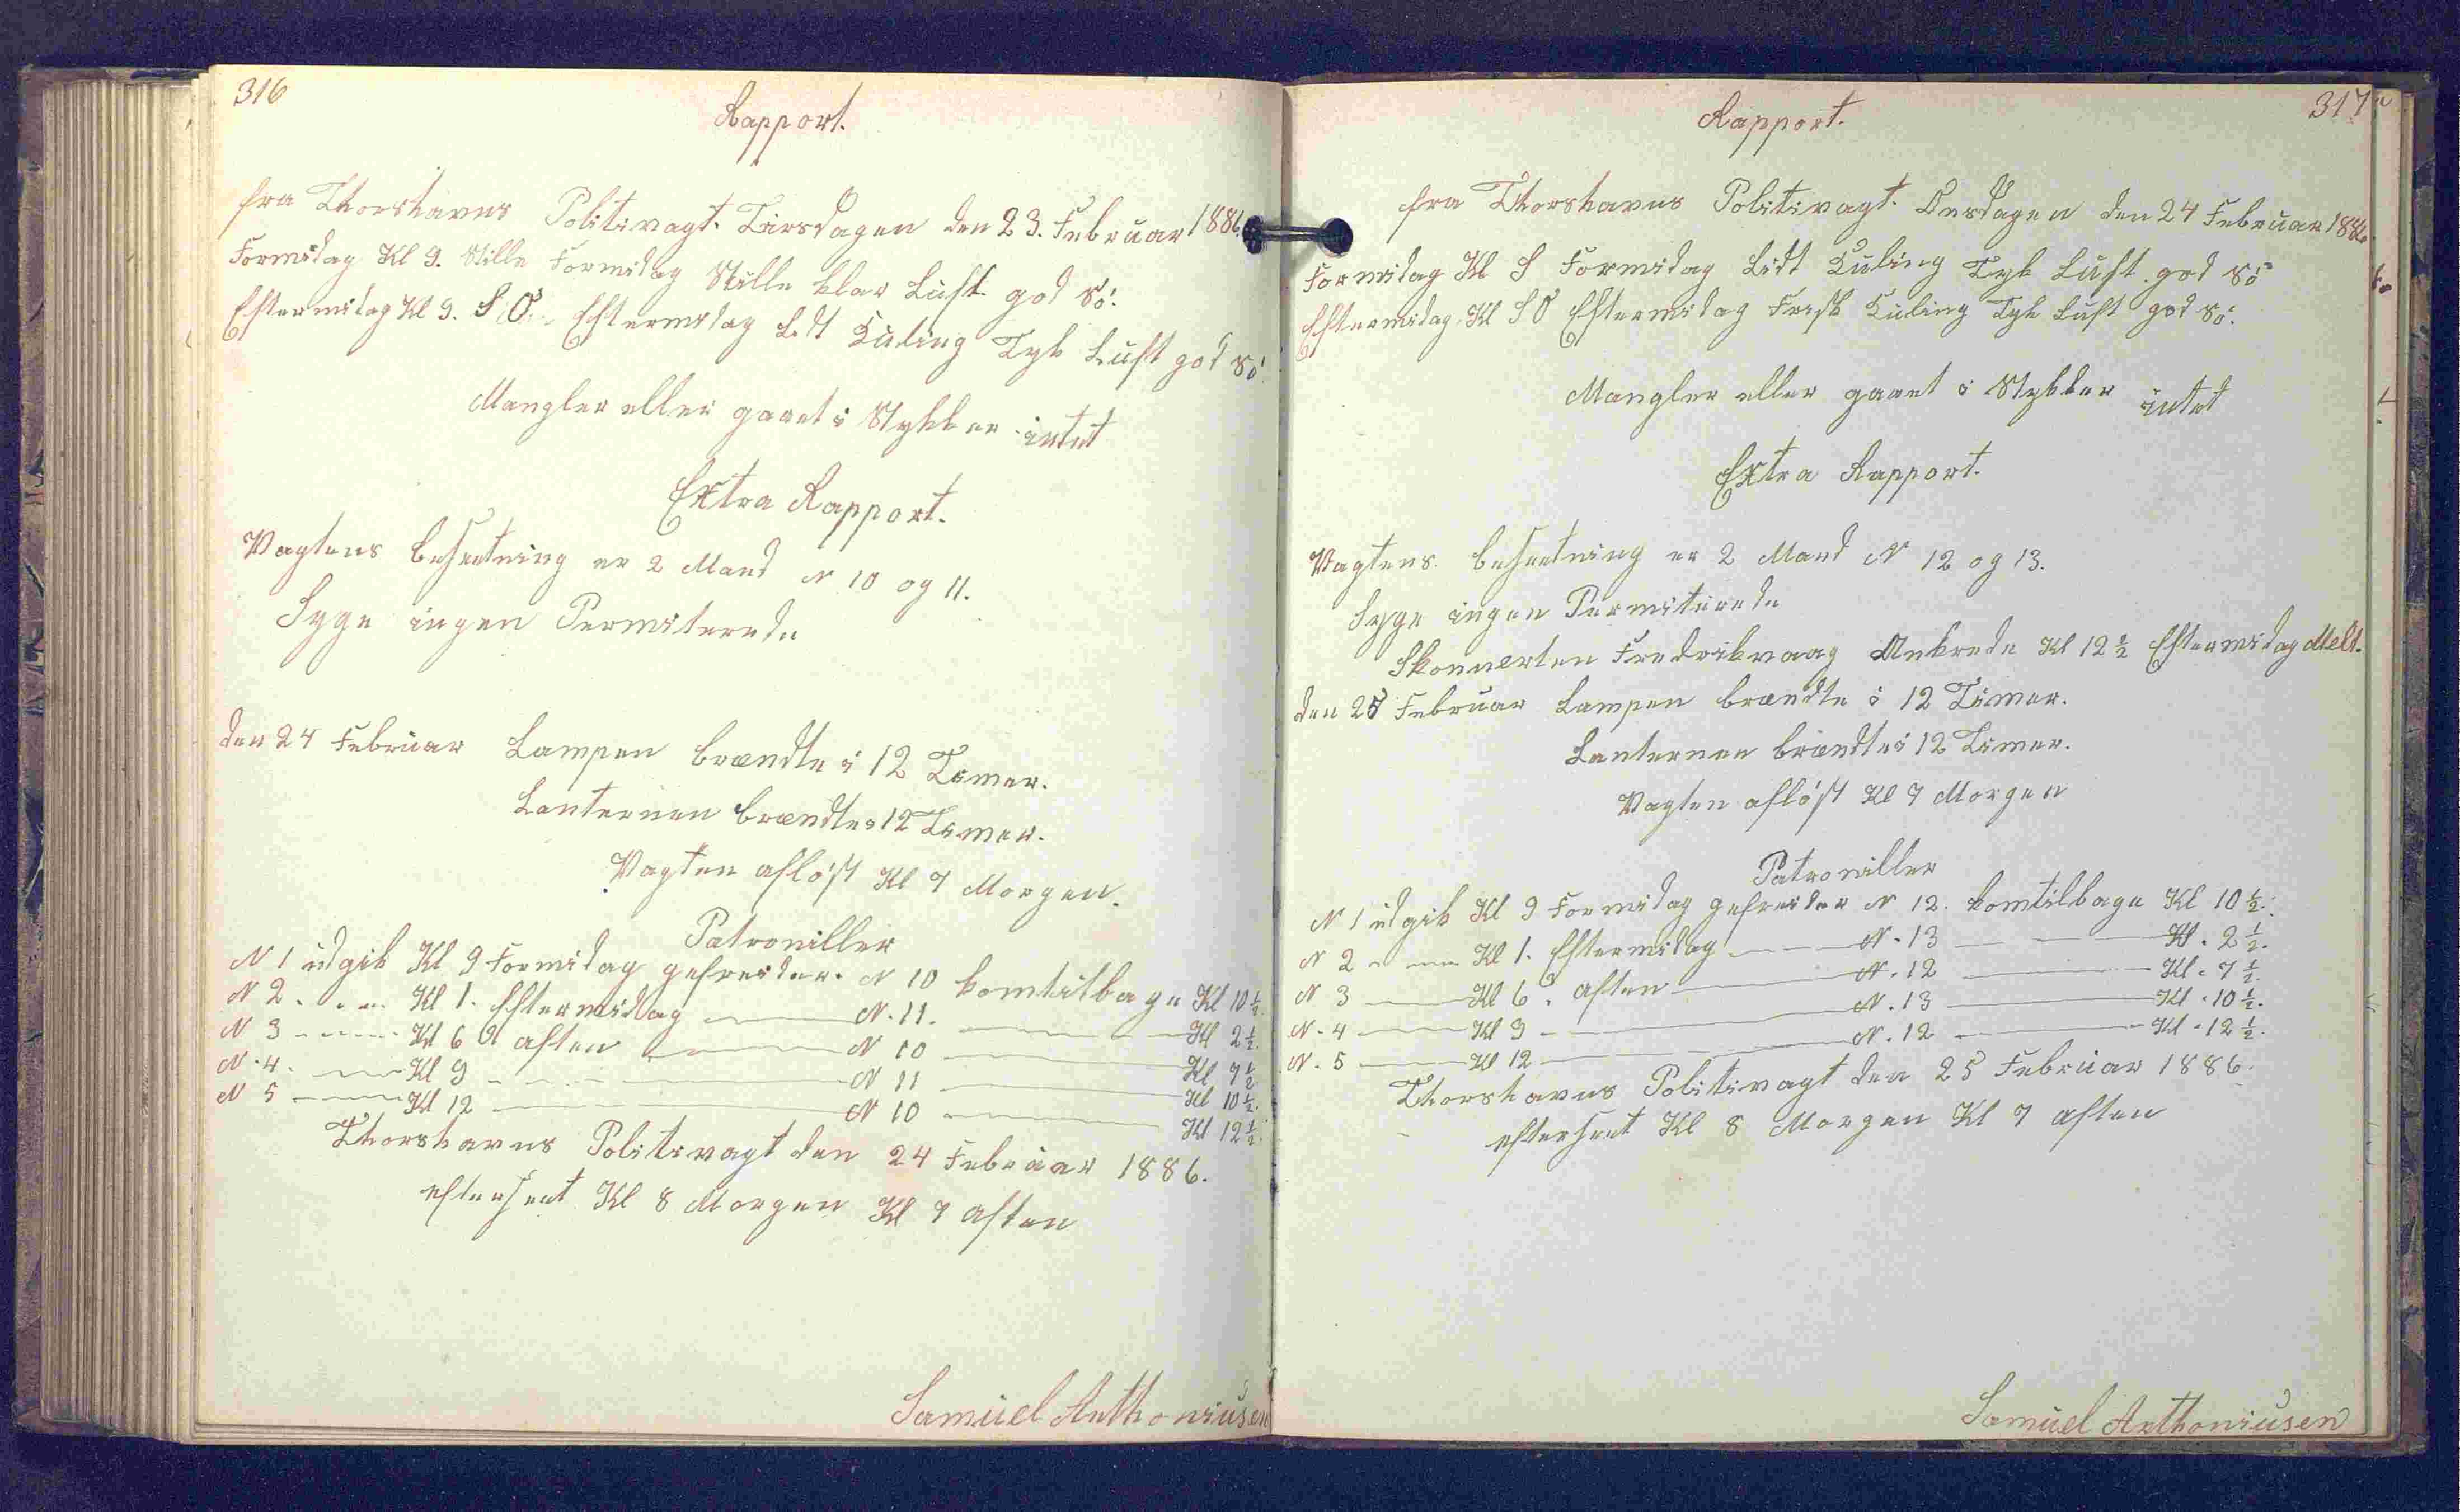 316
Rapport.
fra Thorshavns Politivagt. Tirsdagen den 23. Februar 1886.
Formidag Kl 9. Stille Formidag Stille klar Luft god Sö.
Eftermidag Kl 9. S O. Eftermidag Lidt Kuling Tyk Luft god Sö.
Mangler eller gaaet i Stykker intet
Extra Rapport.
Vagtens besætning er 2 Mand N 10 og 11.
Syge ingen Permiterede
den 24 Februar Lampen brændte i 12 Timer.
Lanternen brændte i 12 Timer.
Vagten aflöst Kl 7 Morgen.
Patroniller
N 1 udgik Kl 9 Formidag gefreider. N 10 komtilbage Kl 10 1/2.
N 2 Kl 1. Eftermidag N. 11. Kl 2 1/2.
N 3 Kl 6 aften N 10 Kl 7 1/2
N. 4. Kl 9 N 11 Kl 10 1/2.
N 5 Kl 12 N 10 Kl 12 1/2.
Thorshavns Politivagt den 24 Februar 1886.
efterseet Kl 8 Morgen Kl 7 aften
Samuel Anthoniusen
317
Rapport.
fra Thorshavns Politivagt. Onsdagen den 24 Februar 1886.
Formidag Kl S Formidag Lidt Kuling Tyk Luft god Sö
Eftermidag. Kl S O Eftermidag Frisk Kuling Tyk Luft god Sö.
Mangler eller gaaet i Stykker intet
Extra Rapport.
Vagtens. besætning er 2 Mand N 12 og 13.
Syge ingen Permiterede
Skonnerten Fredrikvaag Ankrede Kl 12 1/2 Eftermidag Melt.
den 25 Februar Lampen brændte i 12 Timer.
Lanternen brændte i 12 Timer.
Vagten aflöst Kl 7 Morgen
Patroniller
N 1 udgik Kl 9 Formidag gefreider N 12. komtilbage Kl 10 1/2.
N 2 Kl 1. Eftermidag N. 13 Kl. 2 1/2.
N 3 Kl 6. aften N. 12 Kl. 7 1/2.
N. 4 Kl 9 N. 13 Kl. 10 1/2.
N. 5 Kl 12 N. 12 Kl. 12 1/2.
Thorshavns Politivagt den 25 Februar 1886.
efterseet Kl 8 Morgen Kl 7 aften
Samuel Anthoniusen